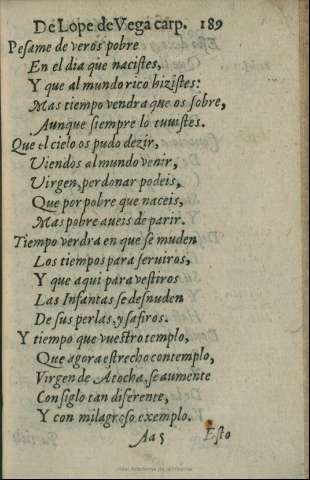 De Lope de Vega carp. 189
Pesame de veros pobre
En el dia que nacistes,
Y que al mundo rico hizistes:
Mas tiempo vendra que os sobre,
Aunque siempre lo tuuistes.
Que el cielo os pudo dezir,
Uiendos al mundo venir,
Uirgen, perdonar podeis,
Que por pobre que naceis,
Mas pobre aueis de parir.
Tiempo verdra en que se muden
Los tiempos para seruiros,
Y que aqui para vestiros
Las Infantas se desnuden
De sus perlas, y safiros.
Y tiempo que vuestro templo,
Que agora estrecho contemplo,
Virgen de Atocha, se aumente
Con siglo tan diferente,
Y con milagroso exemplo.
Aa 5 Esto